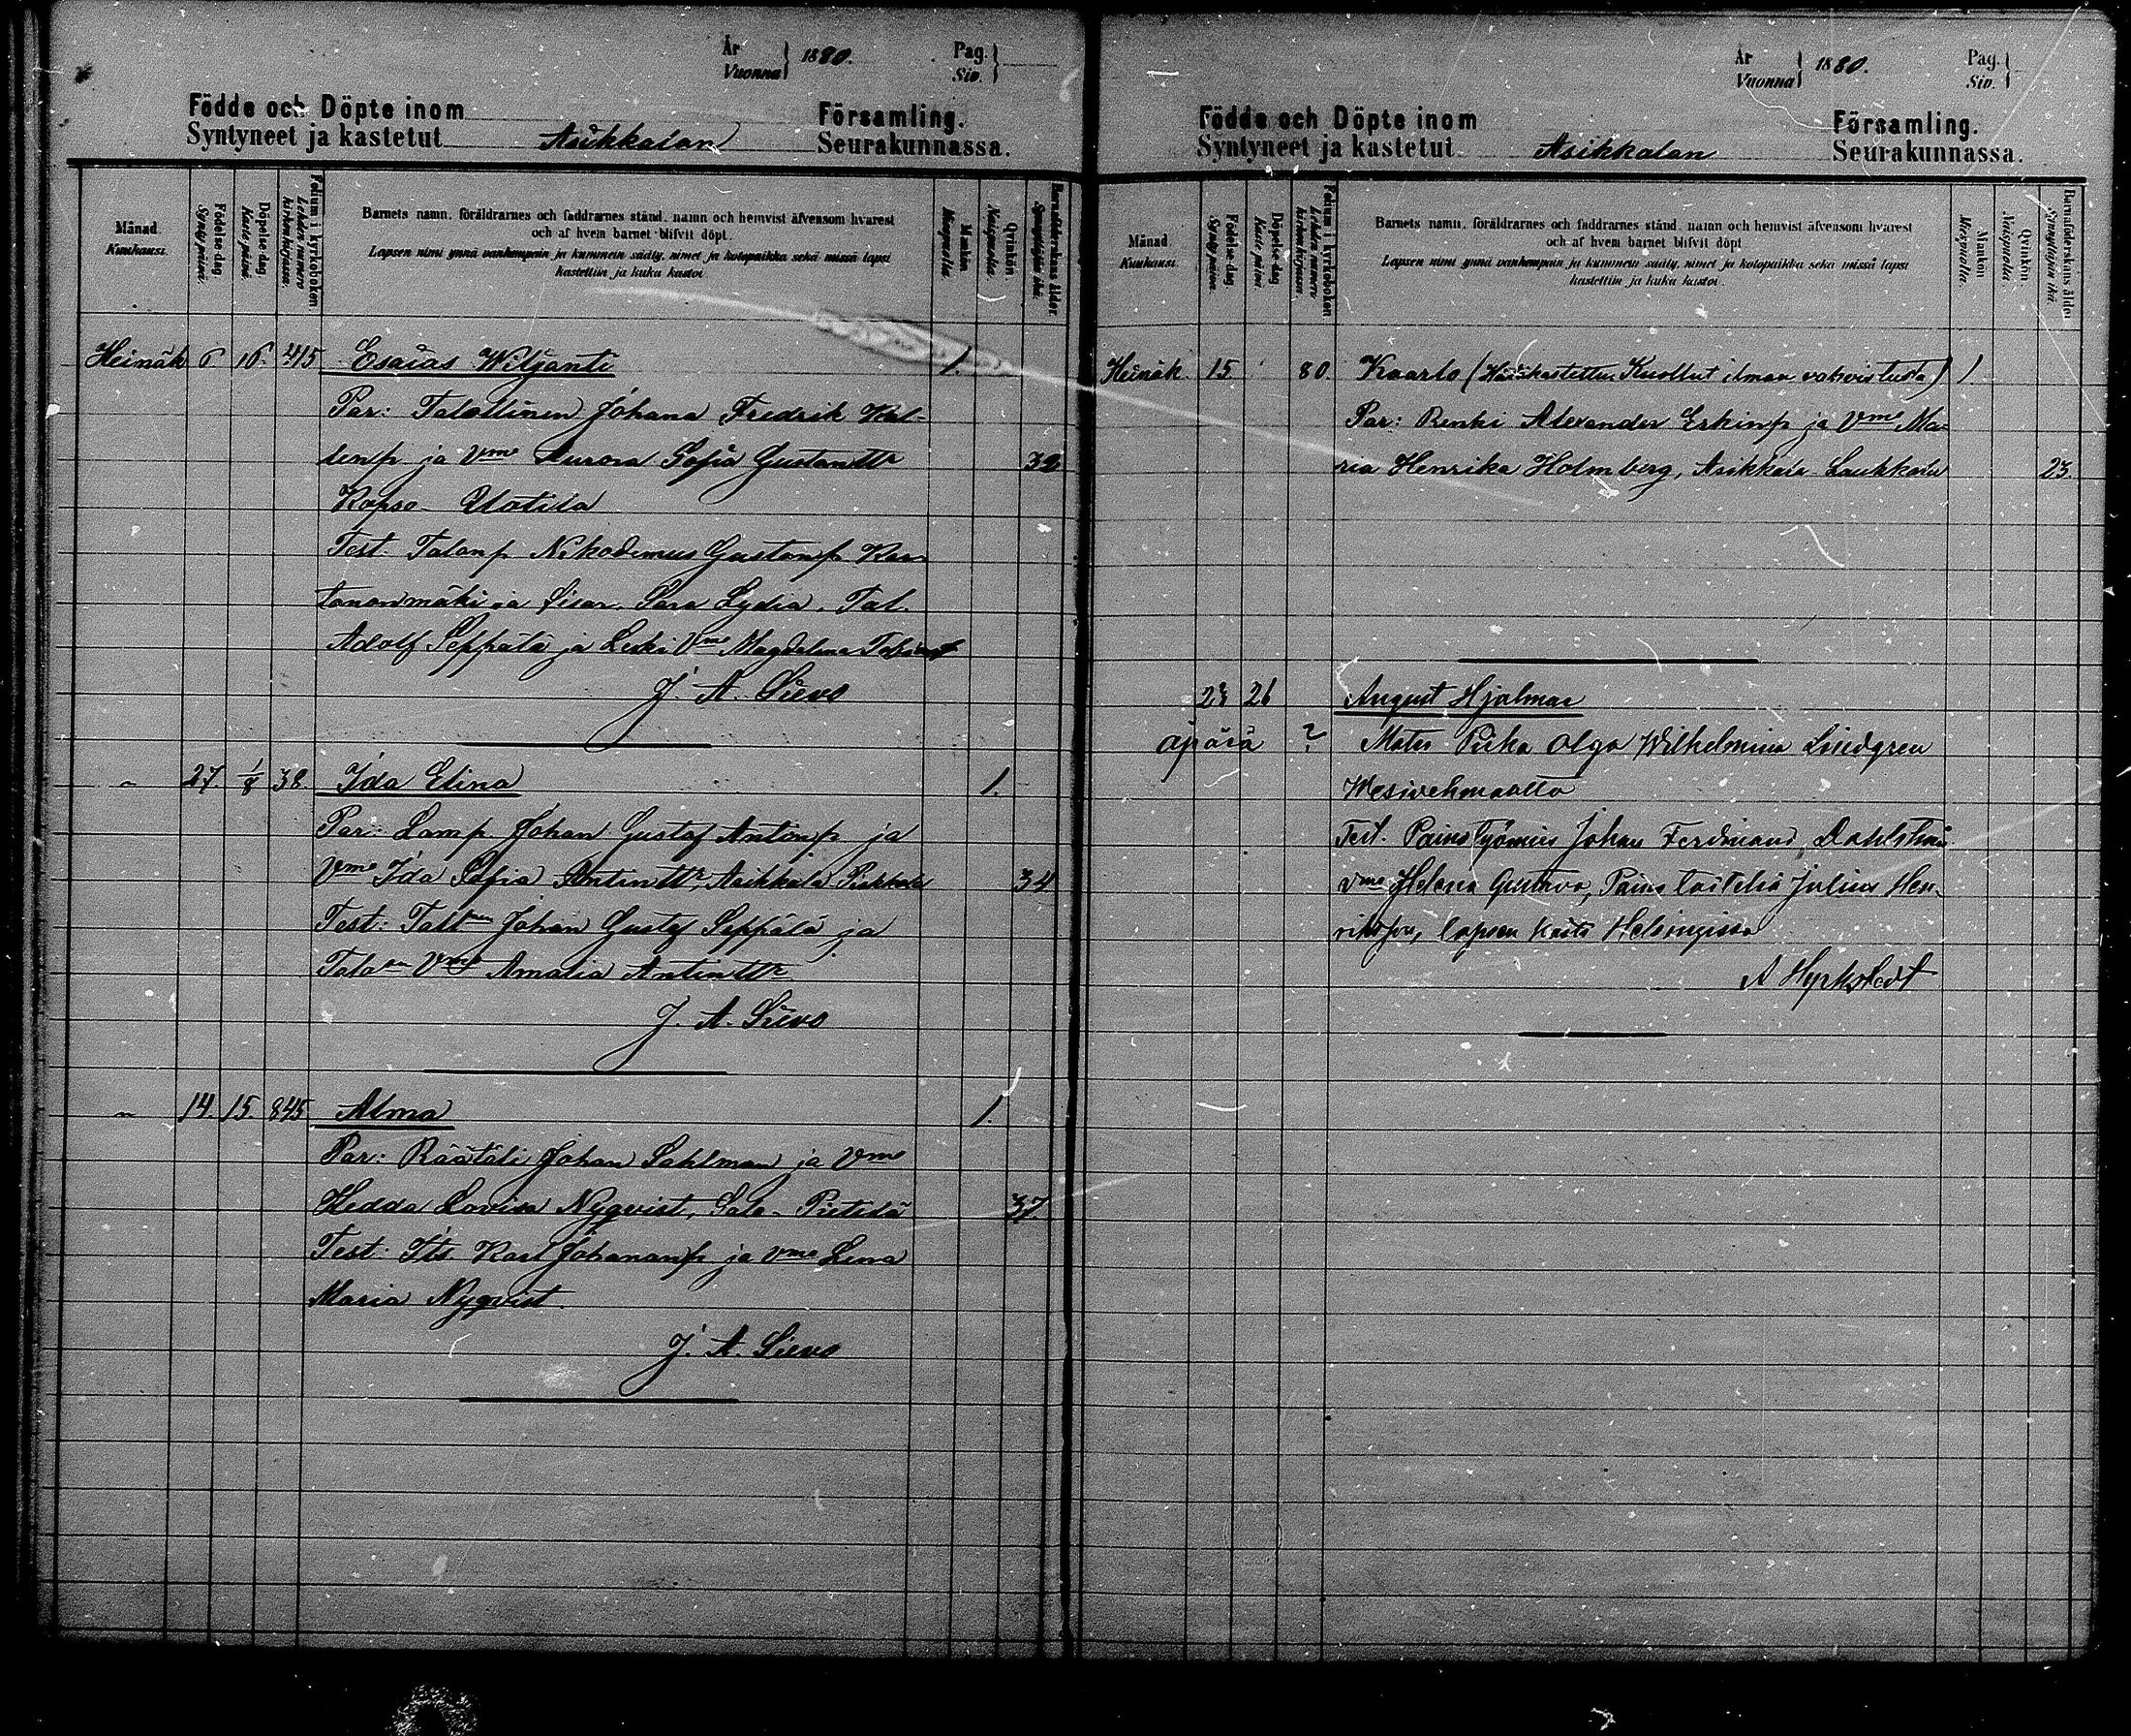 År
Vuonna 1880.
Pag.
Siv.
Födde och Döpte inom Församling.
Syntyneet ja kastetut Asikkalan Seurakunnassa.
Månad.
Kuukausi.
Födelse-dag.
Syntypäivä.
Döpelse-dag.
Kastepäivä.
Folium i kyrkoboken.
Lehden numero kirkonkirjassa.
Barnets namn, föräldrarnes och faddrarnes stånd, namn och hemvist äfvensom hvarest
och af hvem barnet blifvit döpt.
Lapsen nimi ynnä vanhempain ja kummein sääty, nimet ja kotopaikka sekä missä lapsi
kastettiin ja kuka kastoi.
Mankön.
Miespuolia.
Qvinkön.
Naispuolia.
Barnaföderskans ålder.
Synnyttäjän ikä.
Heinäk 6. 16. 415 Esaias Viljanti 1.
Par: Talollinen Johana Fredrik Kal-
lenp. ja Vmo Aurora Sofia Gustantr 32
Kopso Uotila
Test. Talonp. Nikodemus Gustanp. Kar-
tanonmäki ja sisar Sara Lydia. Tal.
Adolf Seppälä ja Leski Vmo Magdelena
J. A. Sievo
" 27. 1/8 38. Ida Elina 1.
Par: Lamp. Johan Gustaf Antinp. ja
Vmo Ida Sofia Antintr, Asikkala 34
Test: Johan Gustaf Seppälä ja
Talon Vmo Amalia Antintr
J. A. Sievo
" 14. 15. 845 Alma 1.
Par: Räätäli Johan Sahlman ja Vmo
Hedda Lovisa Nyqvist, Salo-Pietilä 37.
Test: Its. Karl Johananp. ja Vmo Lena
Maria Nyqvist.
J. A. Sievo
År
Vuonna 1880.
Pag.
Siv.
Födde och Döpte inom Församling.
Syntyneet ja kastetut Asikkalan Seurakunnassa.
Månad.
Kuukausi.
Födelse-dag.
Syntypäivä.
Döpelse-dag.
Kastepäivä.
Folium i kyrkoboken.
Lehden numero kirkonkirjassa.
Barnets namn, föräldrarnes och faddrarnes stånd, namn och hemvist äfvensom hvarest
och af hvem barnet blifvit döpt.
Lapsen nimi ynnä vanhempain ja kummein sääty, nimet ja kotopaikka sekä missä lapsi
kastettiin ja kuka kastoi.
Mankön.
Miespuolia.
Qvinkön.
Naispuolia.
Barnaföderskans ålder.
Synnyttäjän ikä.
Heinäk 15 80. Kaarlo (Hätäkastettu, Kuollut ilman vahvistusta) 1.
Par: Renki Alexander Erkinp. ja Vmo Ma-
ria Henrika Holmberg, Asikkala Laukkala 23.
23 26 August Hjalmar
äpärä ? Mater Piika Olga Wilhelmina Lindgren
Wesivehmaalta
Test. Paino työmies Johan Ferdinand Dahlström
vmo Helena Gustava, Paino Julius Hen-
riksson, lapsen kaste Helsingissä
A Hyrkstedt